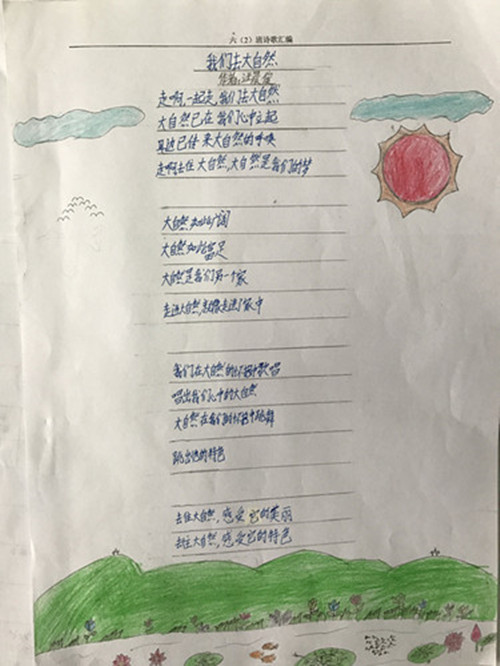 六（2）班诗歌汇编
我们去大自然
作者:汪
走啊,一起走,我们去大自然
大自然已在我们心中立起
耳边已传来大自然的呼唤
走啊去往大自然,大自然是我们的梦
大自然如此广阔
大自然如此富足
大自然是我们另一个家
走进大自然,就像走进了家中
我们在大自然的怀抱中歌唱
唱出我们心中的大自然
大自然在我们的怀抱中跳舞
跳出他的特色
去往大自然,感受它的美丽
去往大自然,感受它的特色